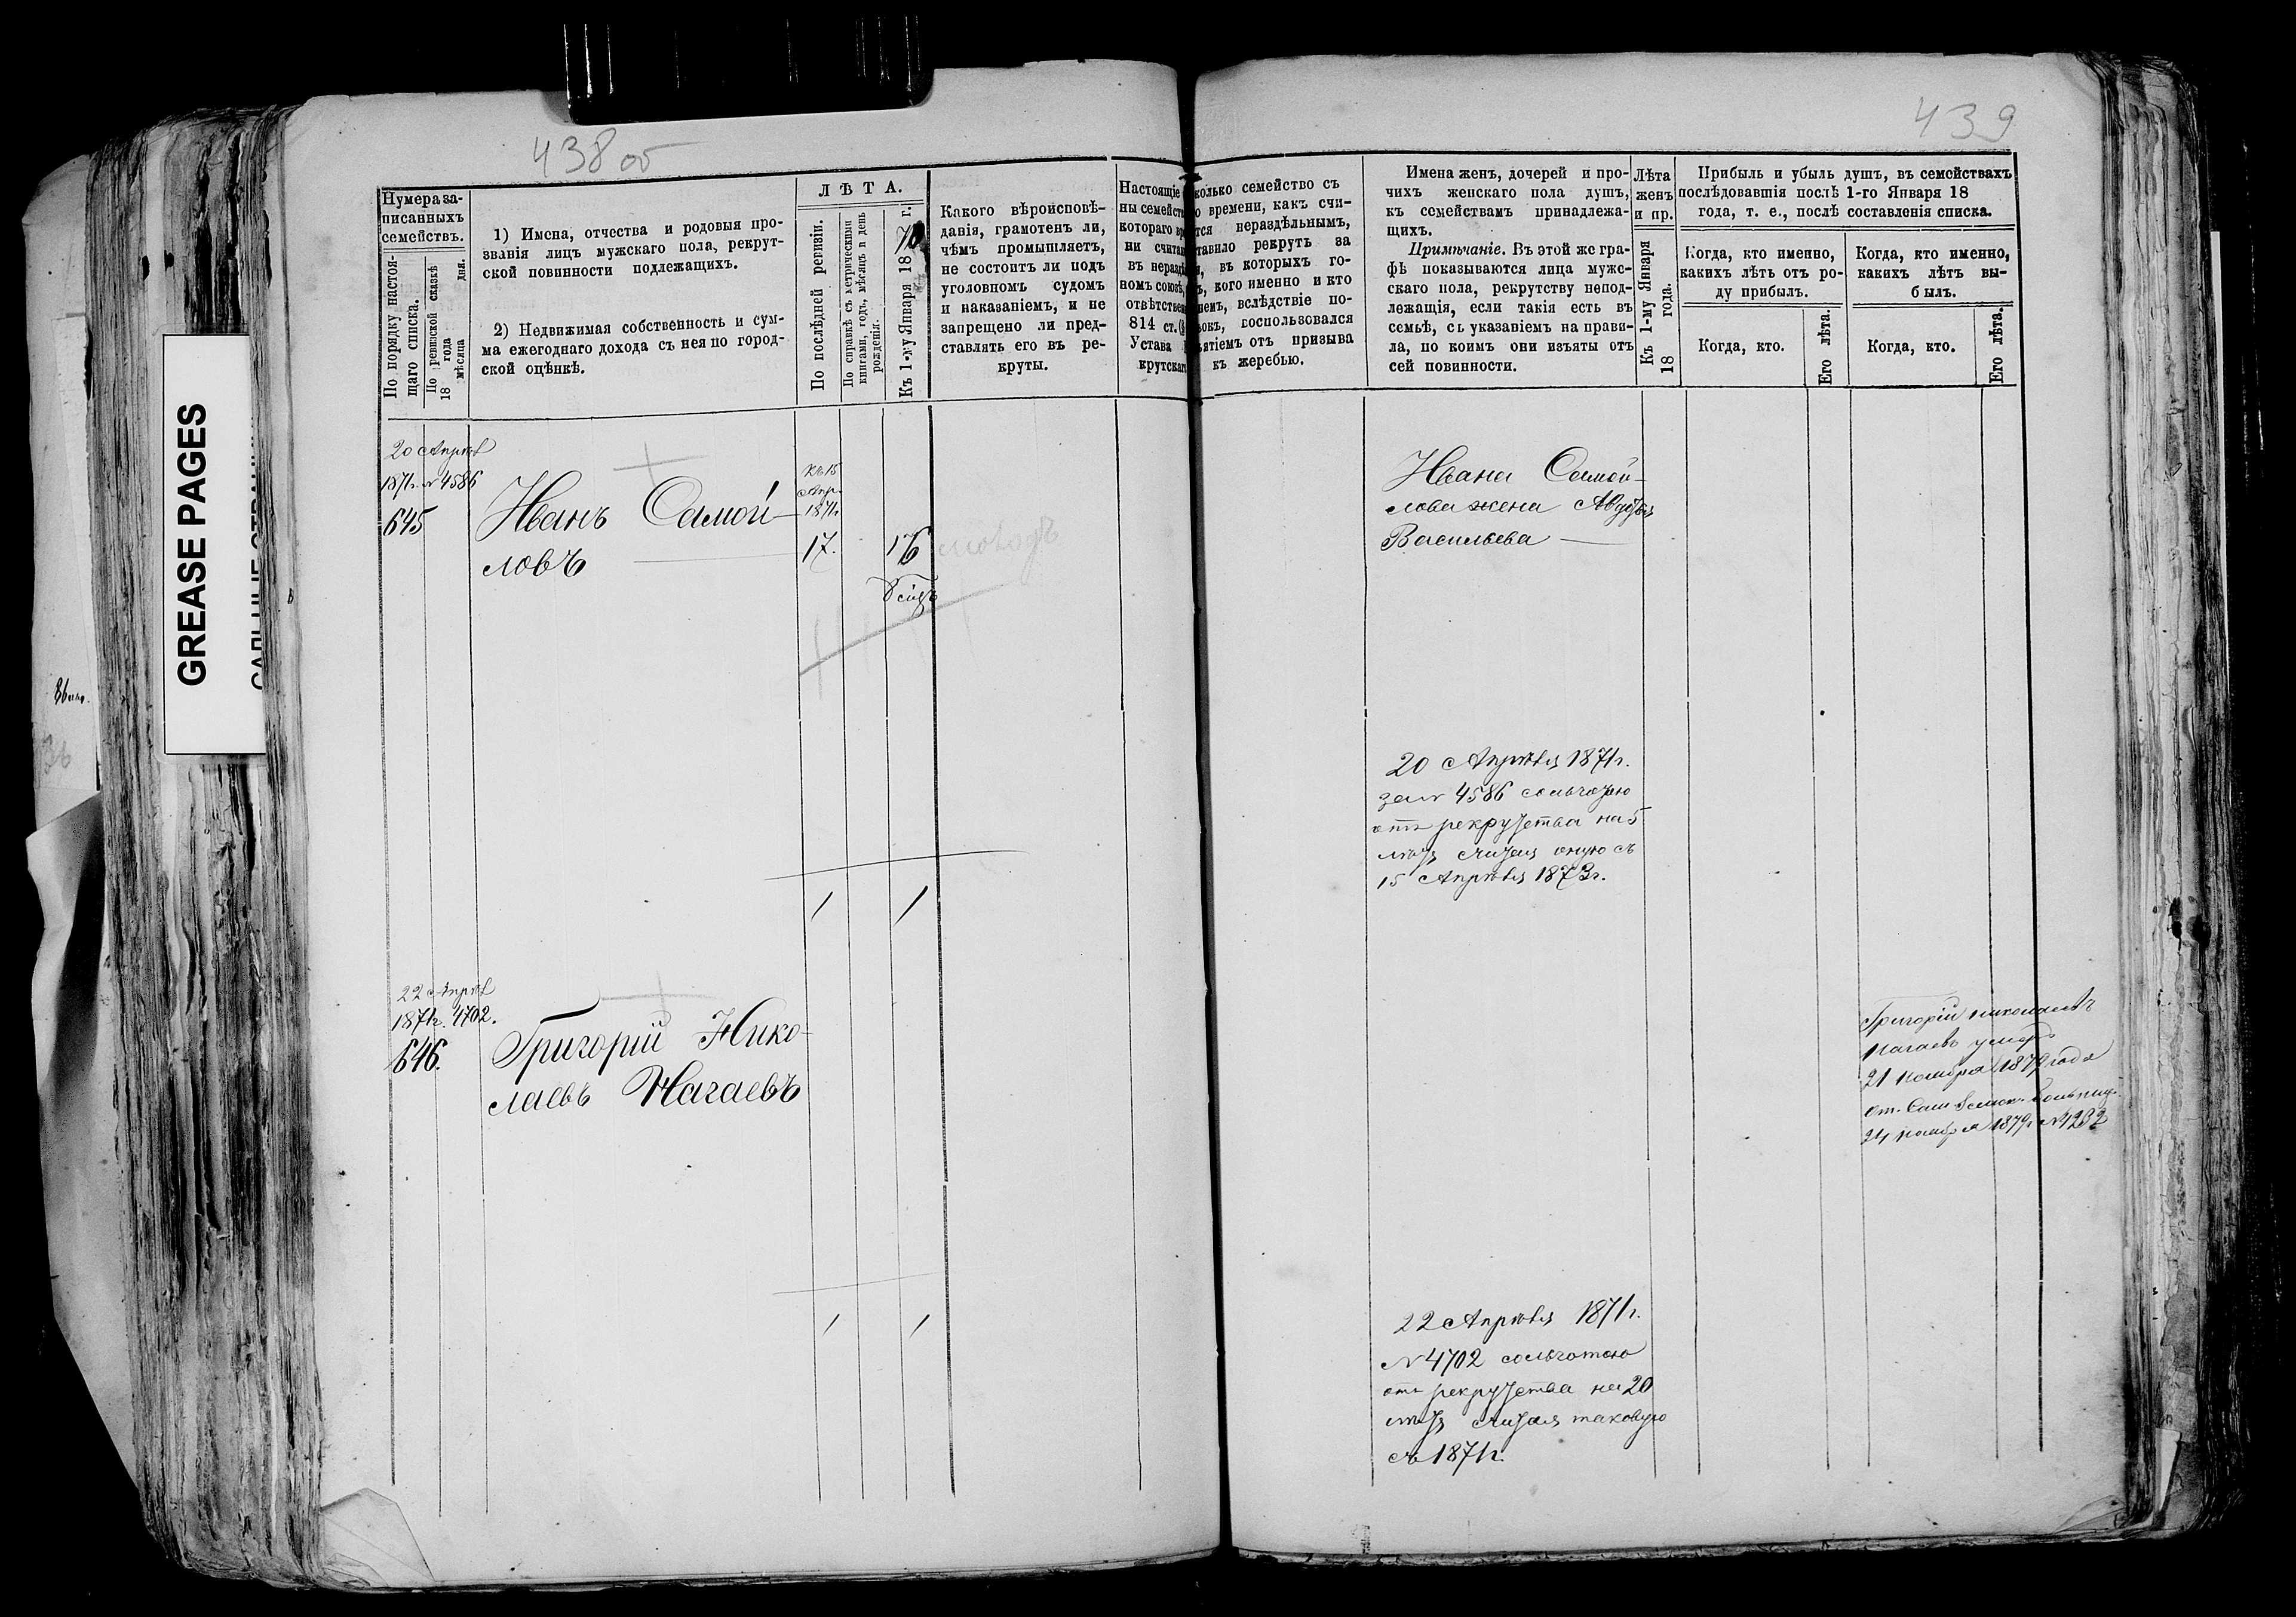 438 об
439
GREASE PAGES
Нумера за-
писанныхъ
семействъ.
По порядку настоя-
щаго списка.
По ревизской сказкѣ
18 года
мѣсяца дня.
1) Имена, отчества и родовыя про-
званія лицъ мужскаго пола, рекрут-
ской повинности подлежащихъ.
2) Недвижимая собственность и сум-
ма ежегоднаго дохода съ нея по город-
ской оцѣнкѣ.
ЛѢТА.
По послѣдней ревизіи.
По справкѣ съ метрическими
книгами, годъ, мѣсяцъ и день
рожденія.
Къ 1-му Января 1870 г.
Какого вѣроисповѣ-
данія, грамотенъ ли,
чѣмъ промышляетъ,
не состоитъ ли подъ
уголовномъ судомъ
и наказаніемъ, и не
запрещено ли пред-
ставлять его въ ре-
круты.
Настоящіе
ны семейств
котораго вр
ни считан
въ неразд
номъ союзѣ,
отвѣтствен
814 ст.
Устава
крутскаг
колько семейство съ
о времени, какъ счи-
тся нераздѣльнымъ,
тавило рекрутъ за
я, въ которыхъ го-
ъ, кого именно и кто
емъ, вслѣдствіе по-
ьокъ, воспользовался
ятіемъ отъ призыва
къ жеребью.
Имена женъ, дочерей и про-
чихъ женскаго пола душъ,
къ семействамъ принадлежа-
щихъ.
Примѣчаніе. Въ этой же гра-
фѣ показываются лица муже-
скаго пола, рекрутству непод-
лежащія, если такія есть въ
семьѣ, съ указаніемъ на прави-
ла, по коимъ они изъяты отъ
сей повинности.
Лѣта
женъ
и пр.
Къ 1-му Января
18 года.
Прибыль и убыль душъ, въ семействахъ
послѣдовавшія послѣ 1-го Января 18
года, т. е., послѣ составленія списка.
Когда, кто именно,
какихъ лѣтъ отъ ро-
ду прибылъ.
Когда, кто.
Его лѣта.
Когда, кто именно,
какихъ лѣтъ вы-
былъ.
Когда, кто.
Его лѣта.
20 Апрѣл
1871г. № 4586
645
Иванъ Самой-
ловъ
Къ 15
Апр.
1871г.
17.
16
Ивана Самой-
лова жена Авдотья
Васильева
20 Апрѣля 1871г.
за № 4586 сольготою
отъ рекрутства на 5
лѣтъ считая оную съ
15 Апрѣля 1873г.
1 1
22 Апрѣл
1871г. 4702.
646.
Григорій Нико-
лаевъ Нагаевъ
Григорій Николаевъ
Нагаевъ умеръ
21 Ноября 1879 года
24 Ноября 1879г №1232
1 1
22 Апрѣля 1871г.
№ 4702 сольготою
отъ рекрутства на 20
лѣтъ считая таковую
съ 1871г.